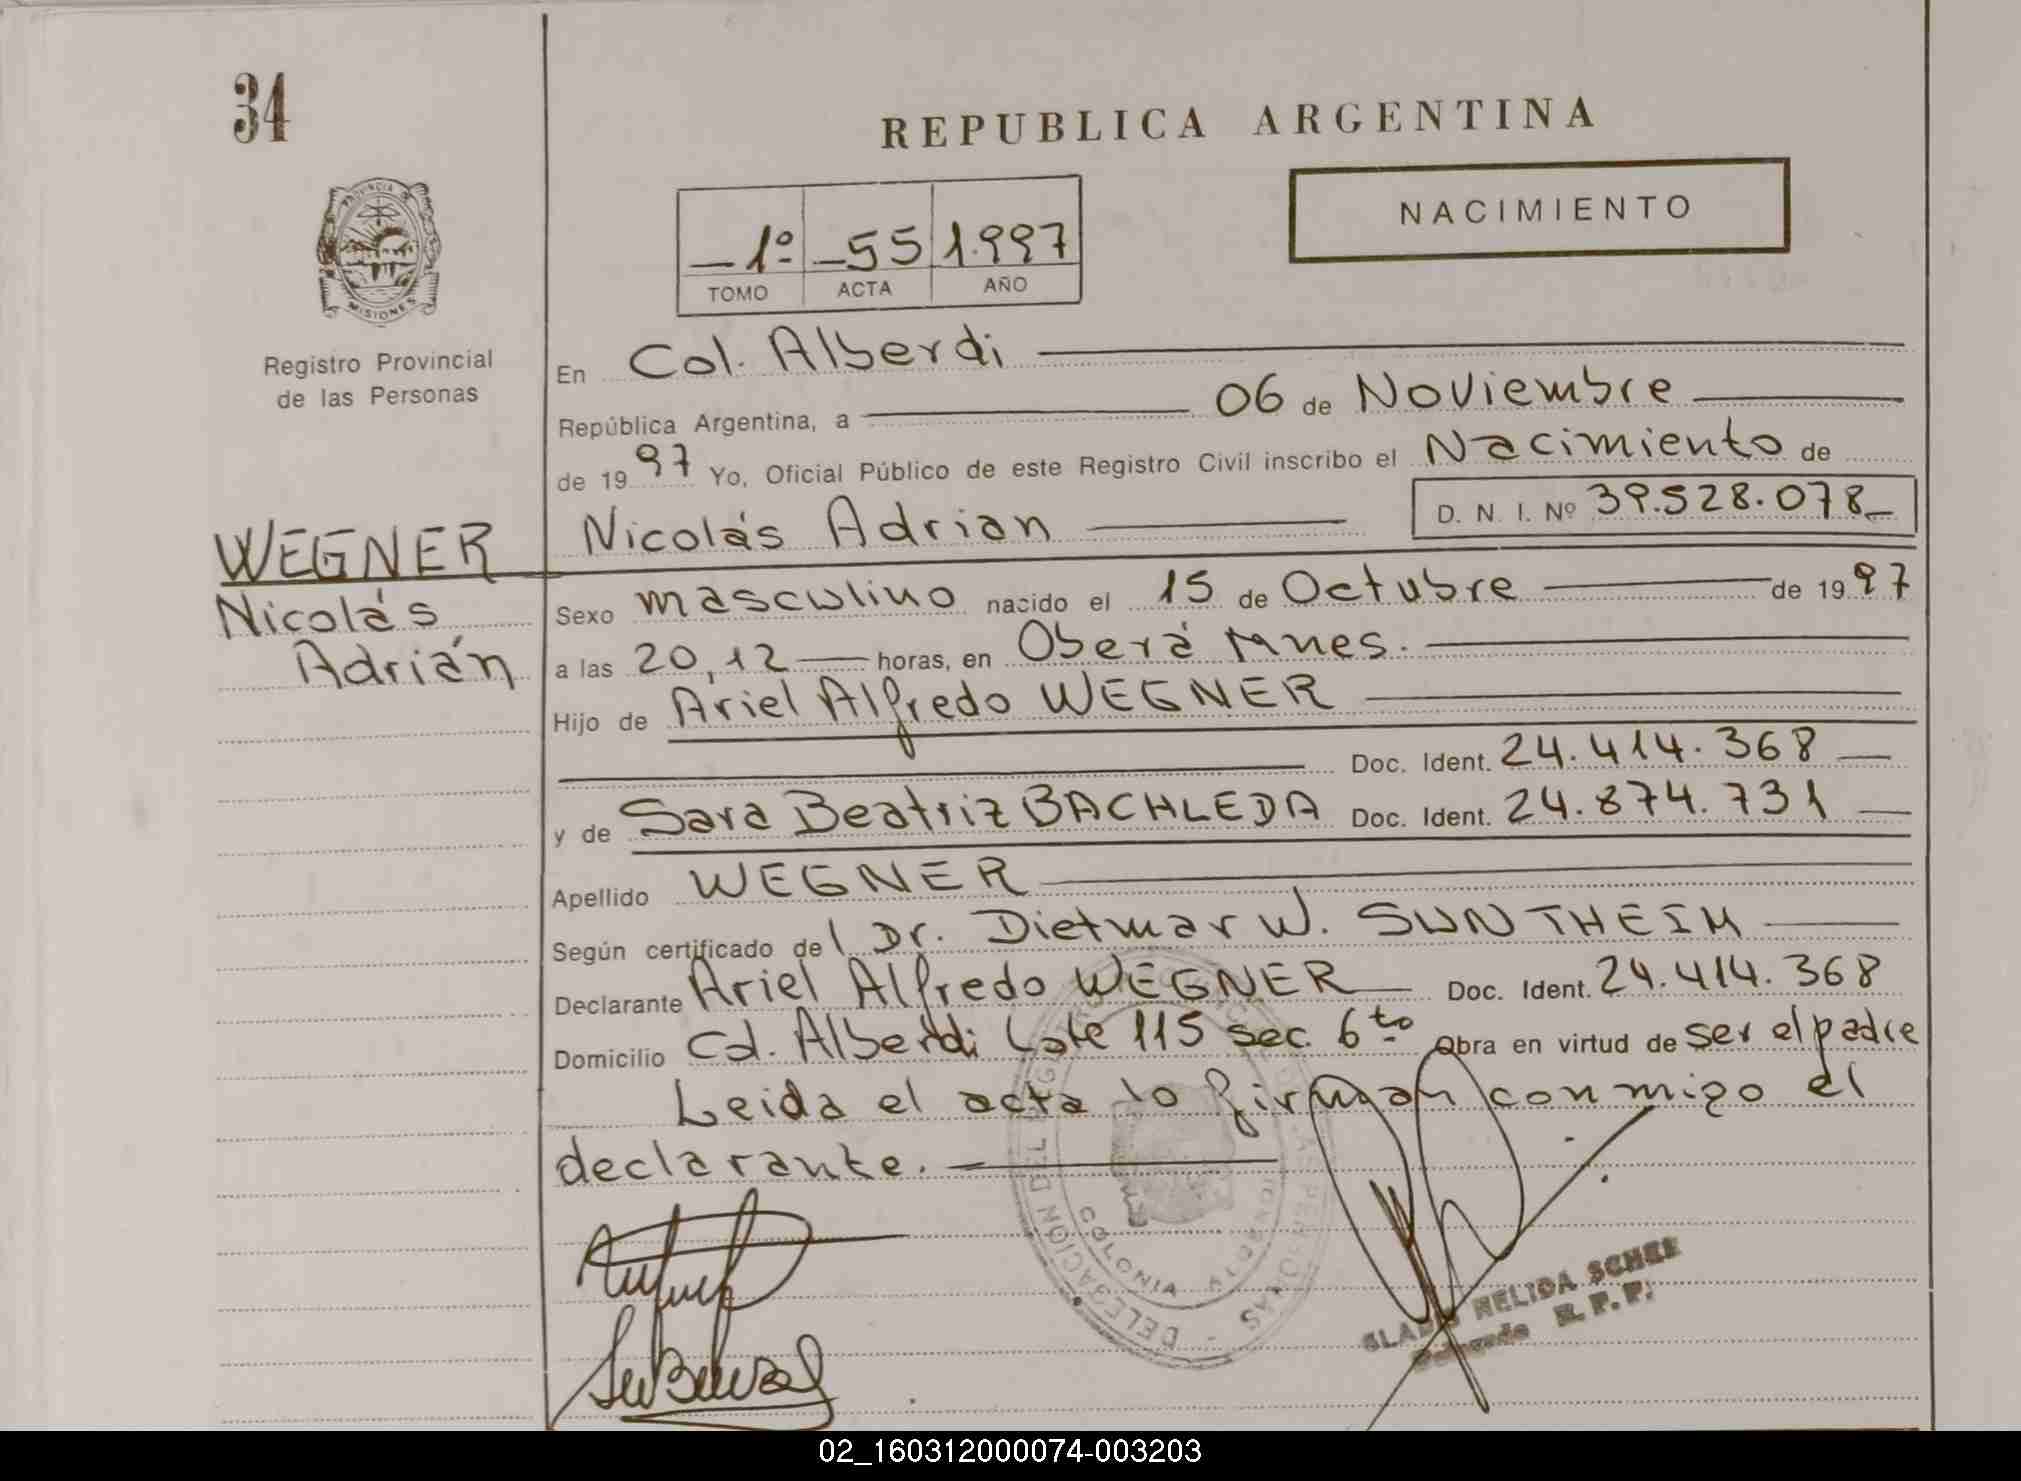 34
REPUBLICA ARGENTINA
NACIMIENTO
PROVINCIA DE
MISIONES
Registro Provincial
de las Personas
1º 55 1.997
TOMO ACTA AÑO
En Col. Alberdi
República Argentina, a 06 de Noviembre
de 1997 Yo, Oficial Público de este Registro Civil inscribo el Nacimiento de
Nicolás Adrian D. N. I. Nº 39.528.078
WEGNER
Nicolás
Adrián
Sexo masculino nacido el 15 de Octubre de 1997
a las 20,12 horas, en Oberá Mnes.
Hijo de Ariel Alfredo WEGNER
Doc. Ident. 24.414.368
y de Sara Beatriz BACHLEDA Doc. Ident. 24.874.731
Apellido WEGNER
Según certificado del Dr. Dietmar W. SUNTHEIM
Declarante Ariel Alfredo WEGNER Doc. Ident. 24.414.368
Domicilio Col. Alberdi Lote 115 sec. 6to Obra en virtud de ser el padre
Leida el acta lo firman conmigo el
declarante.
DELEGACION DEL REGISTRO DE LAS PERSONAS
COLONIA
NELIDA
R. P. P.
02_160312000074-003203